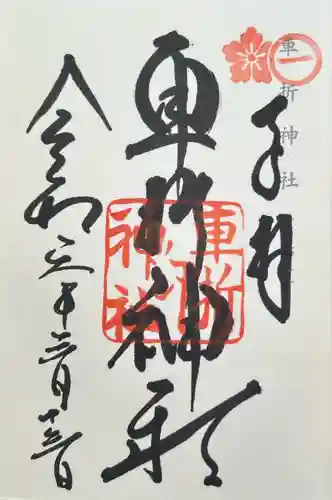 車折神社
一
奉拝
車折神社
車折神社
令和三年三月十三日